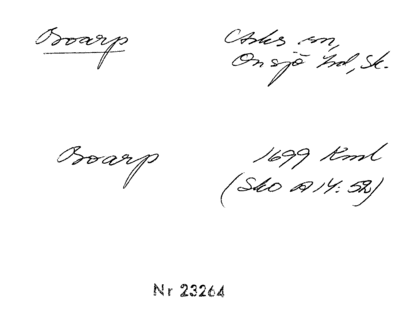 Boarp
Asks sn,
Onsjö hd, Sk.
Boarp 1699 Kml
(Sko A14:52)
Nr 23264